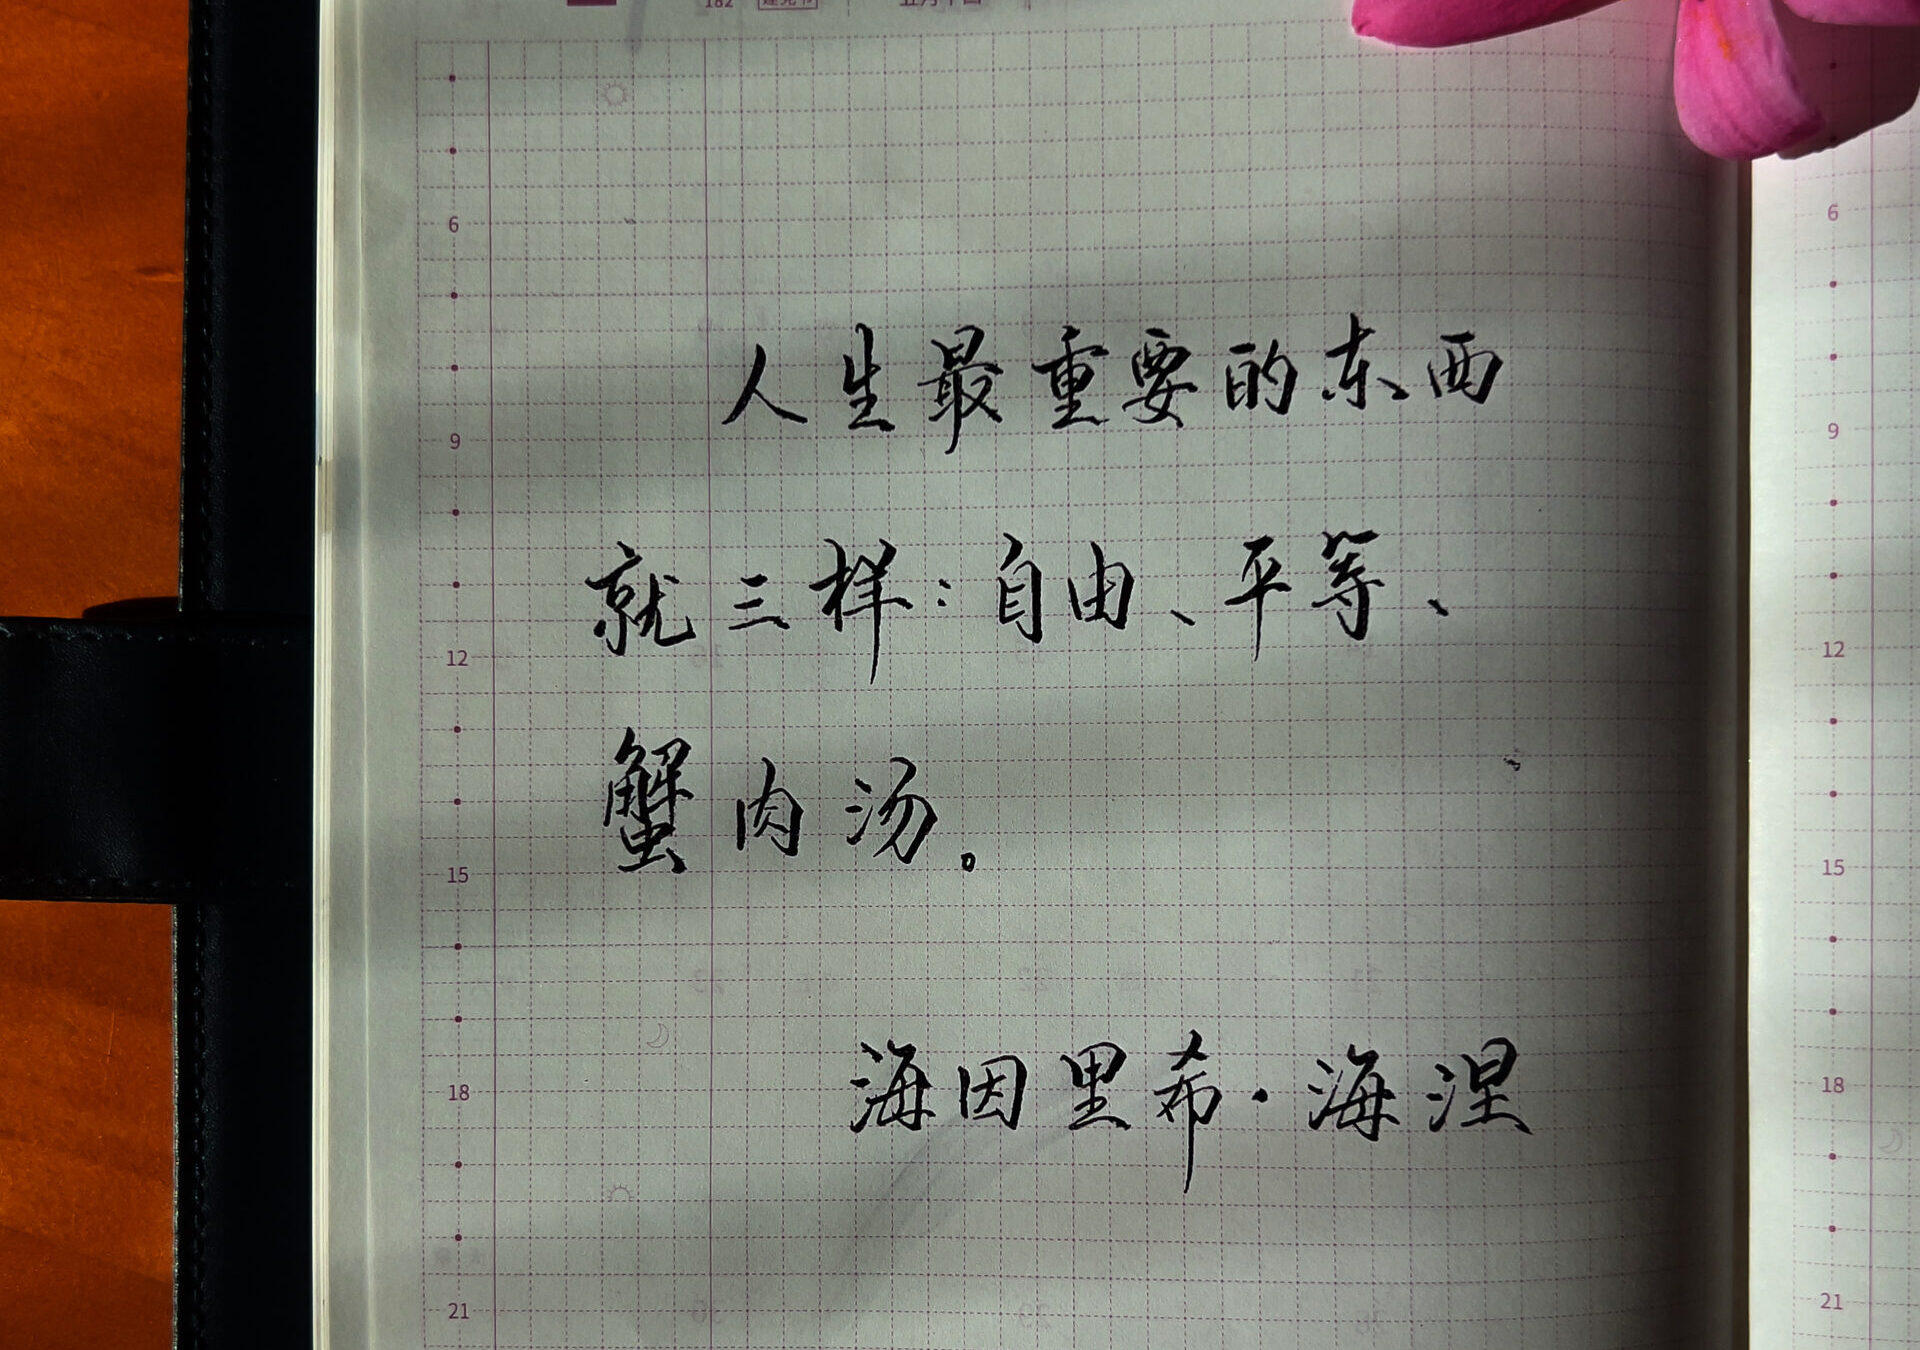 182 建党节
人生最重要的东西
就三样：自由、平等、
蟹肉汤。
海因里希·海涅
6
9
12
15
18
21
6
9
12
15
18
21